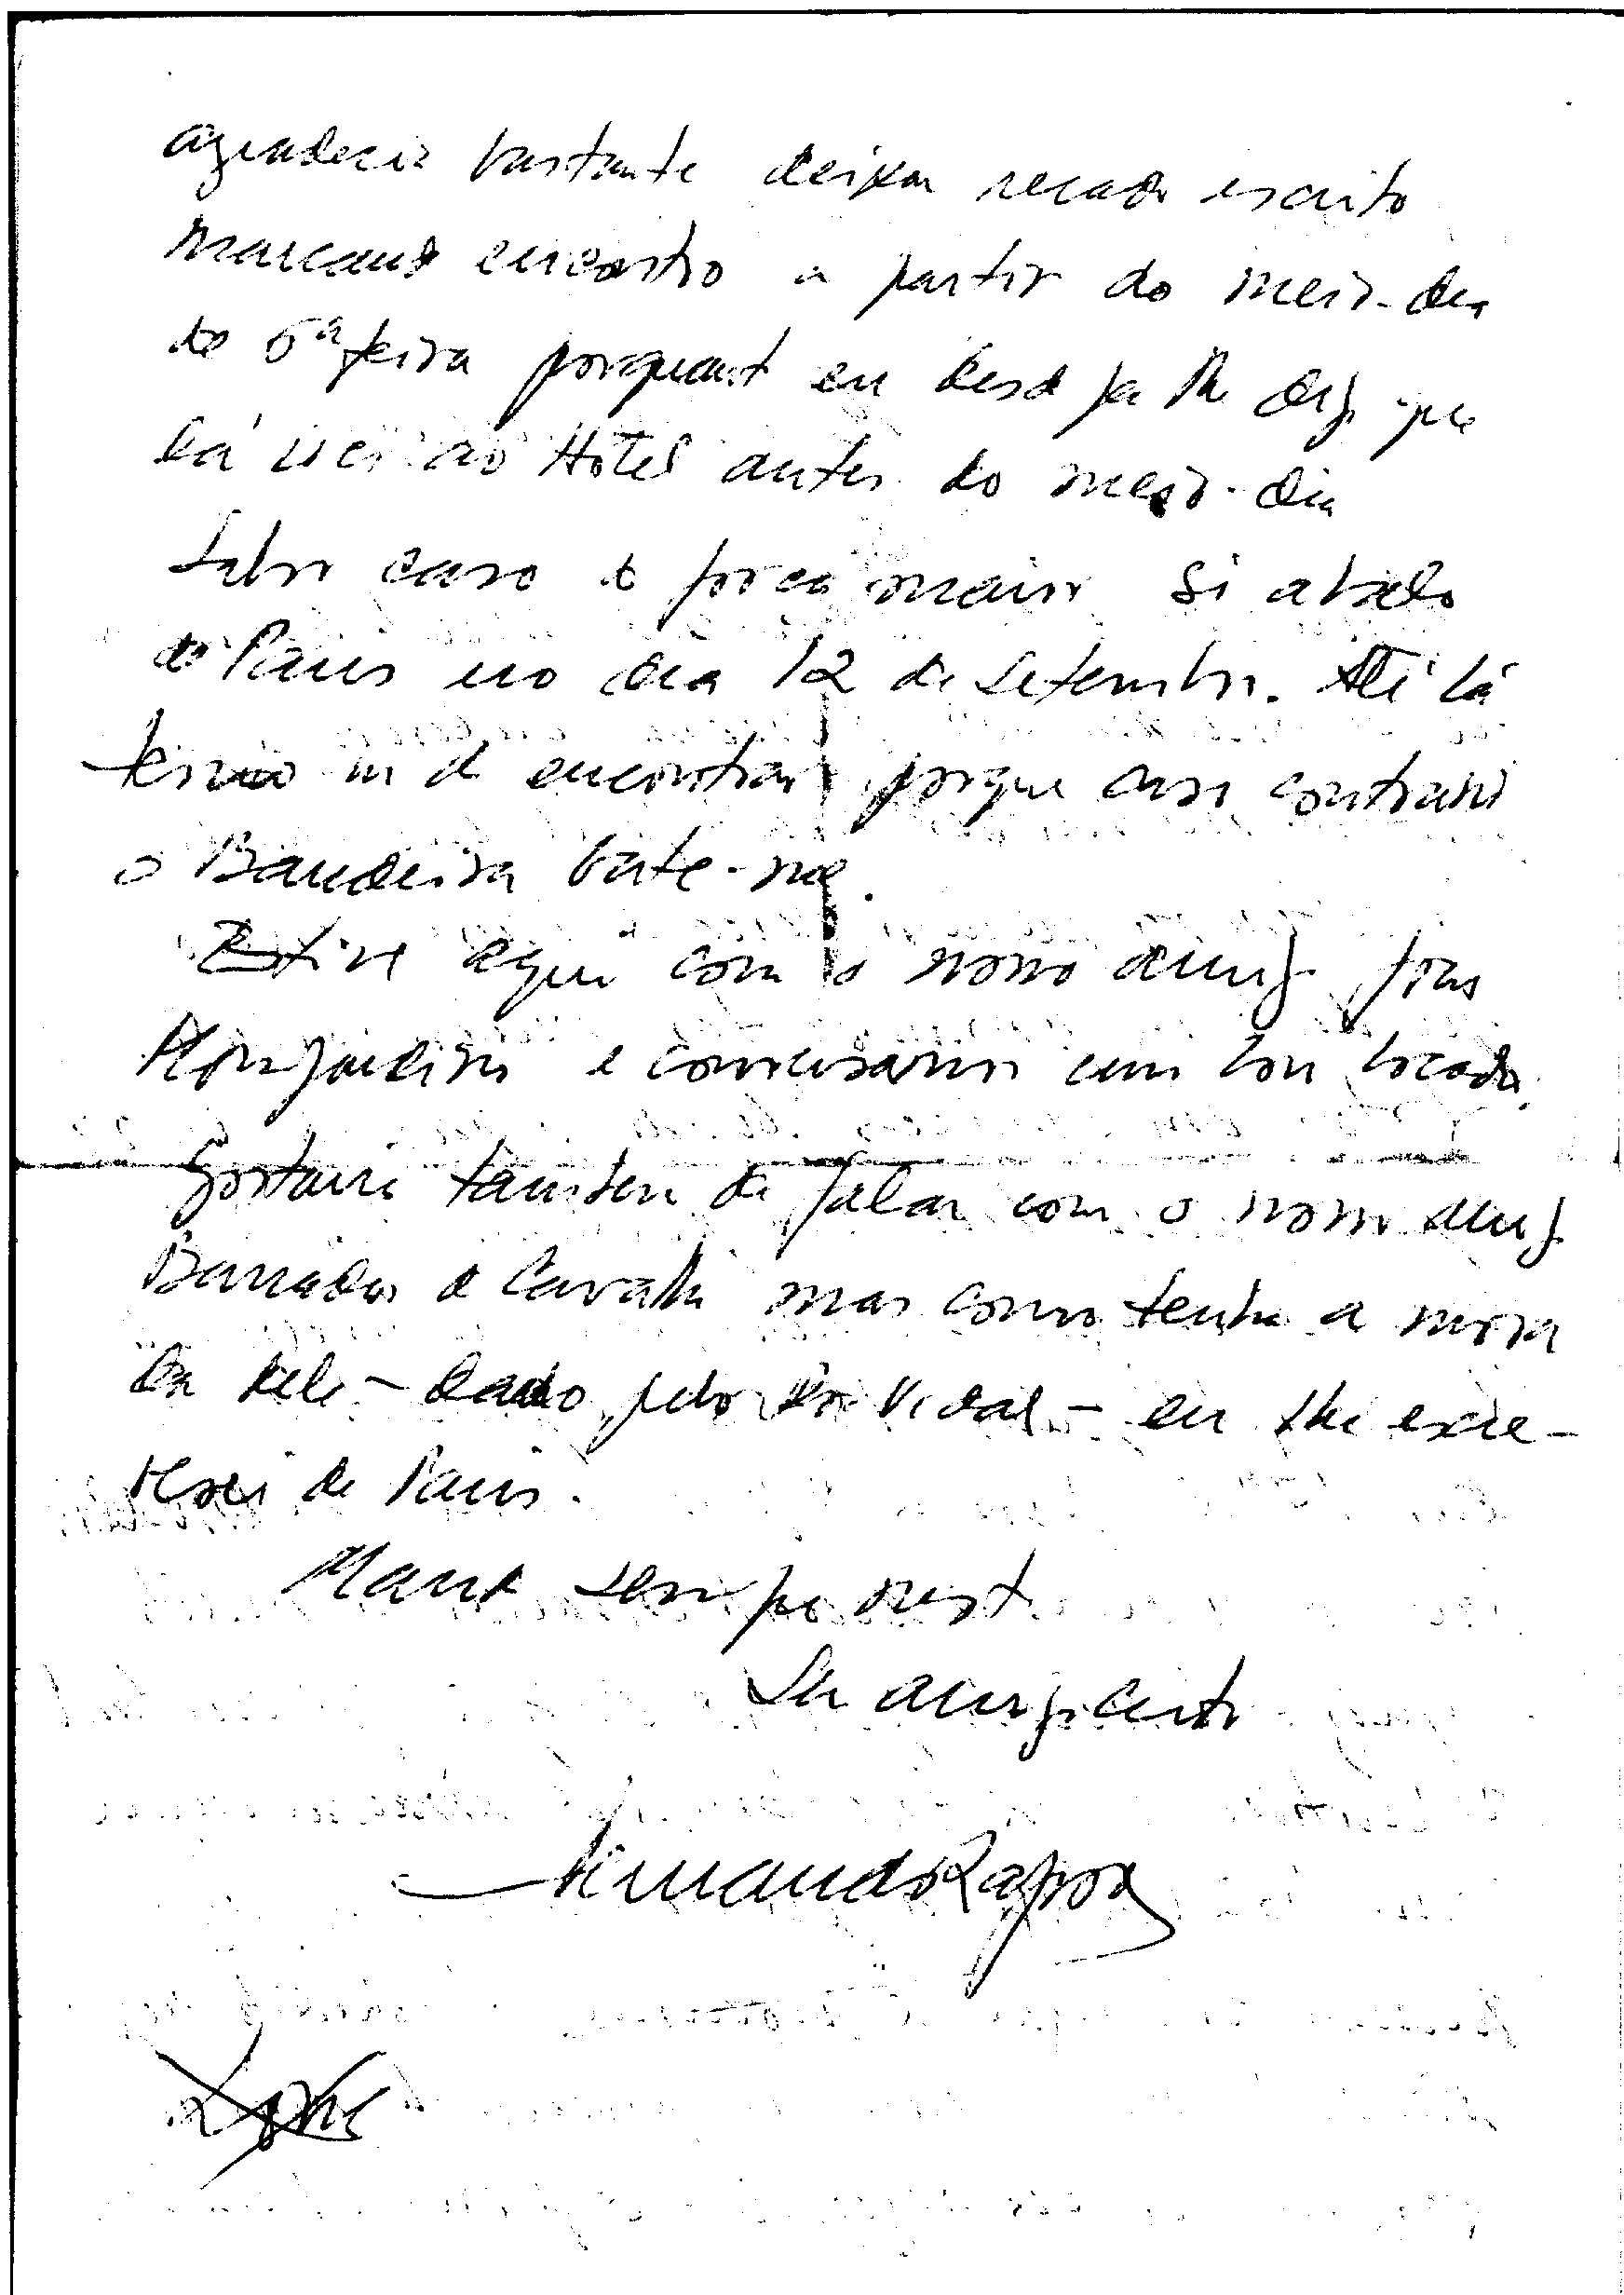 agradecia bastante deixar recado escrito
marcando encontro a partir do meio-dia
de 5ª feira porquanto eu desde já lhe digo que
lá irei ao Hotel antes do meio-dia
Salvo caso de força maior si abalo
de Paris no dia 12 de Setembro. Até lá
temos nos de encontrar porque caso contrario
o Bandeira bate-me.
Estive aqui com o nosso amigo
e conversamos um bom bocado.
Gostaria tambem de falar com o nosso amigo
Barradas de Carvalho mas como tenho a morada
dele - dado pelo Dr Vidal - eu lhe escre-
verei de Paris.
Mande sempre neste
Seu amigo certo